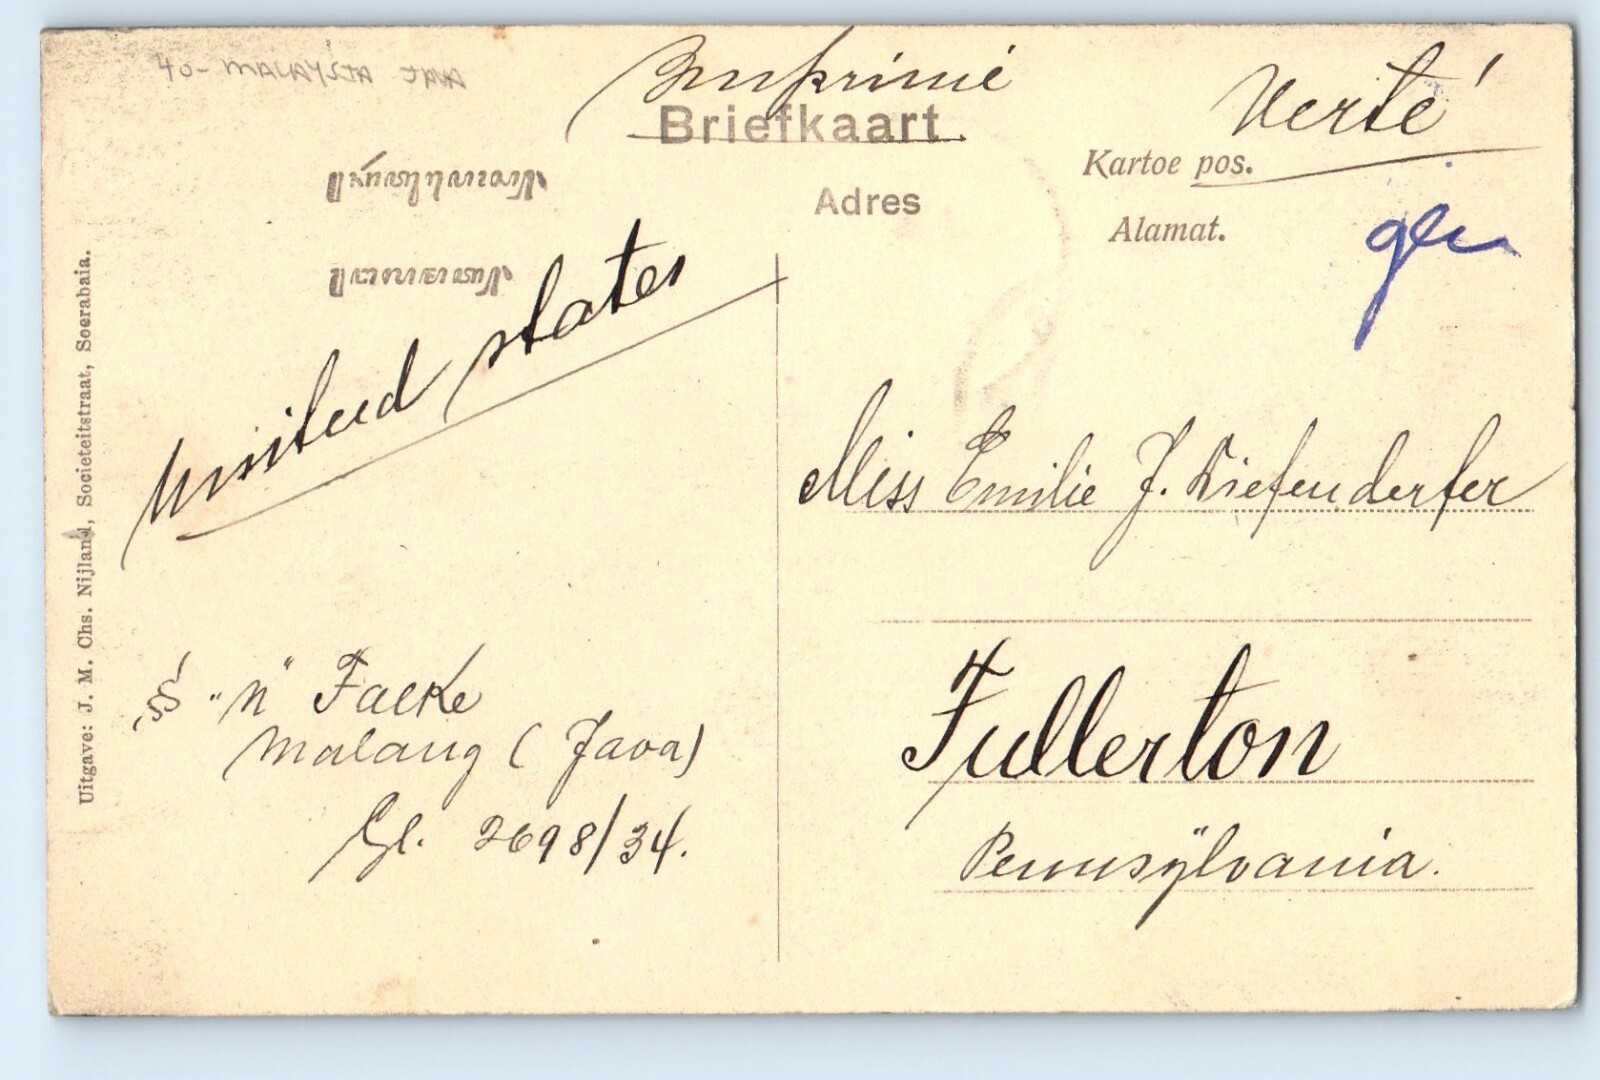 40- MALAYSIA JAVA
Imprimé
Verté
Briefkaart
Kartoe pos.
Adres
Alamat.
United states
Uitgave: J. M. Chs. Nijland, Societeitstraat, Soerabaia.
Miss Emilie J. Diefenderfer
Fullerton
Pennsÿlvania.
"n" Facke
Malang (Java)
Gl. 2698/34.